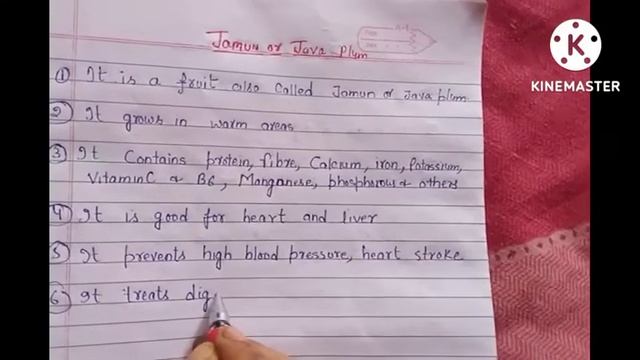 Jamun or Java Plum
KINEMASTER
1 It is a fruit also called Jamun or Java plum
2 It grows in warm areas
3 It Contains protein, fibre, Calcium, iron, Potassium,
Vitamin C & B6, Manganese, phosphorous & others
4 It is good for heart and liver
5 It prevents high blood pressure, heart stroke
6 It treats dig